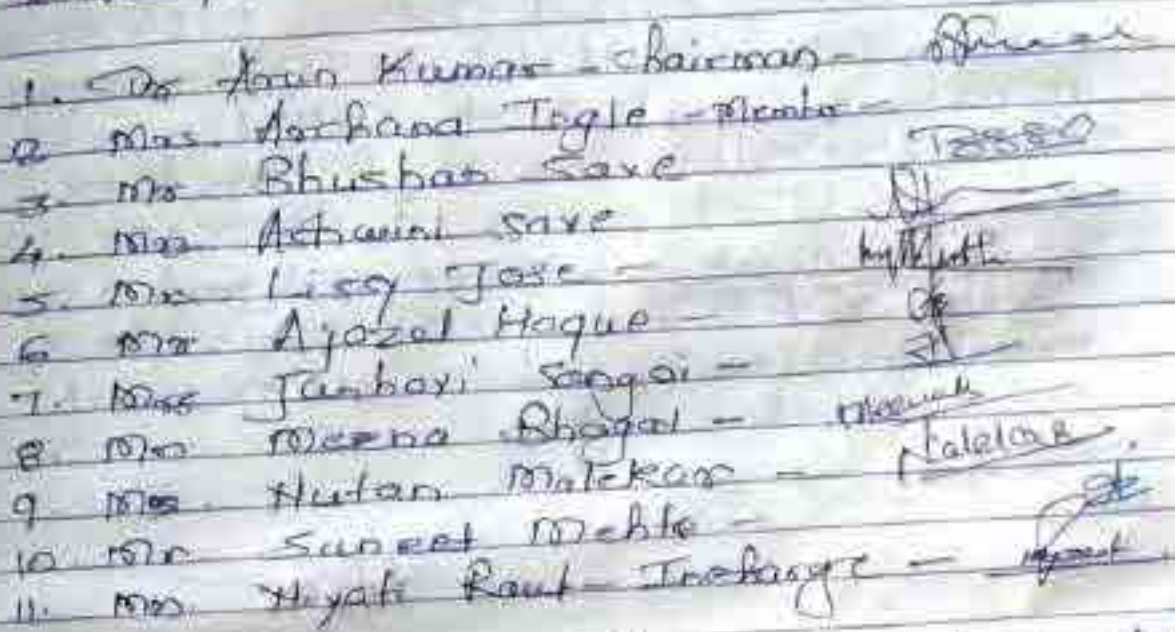 1. Dr Arun Kumar - Chairman -
2 Mrs. Archana Ingle - Membr -
3. Mr Bhushan Save
4. Mrs Ashwini Save
5. Mrs Lissy Jose -
6 Mr. Ajazol Haque -
7. Miss Jambavi Sangoi -
8. Mrs Meena Bhagat - Meenab
9 Mrs. Nutan Malekar -
10 Mr Saneet Mehta -
11. Mrs. Niyati Raut - Incharge -